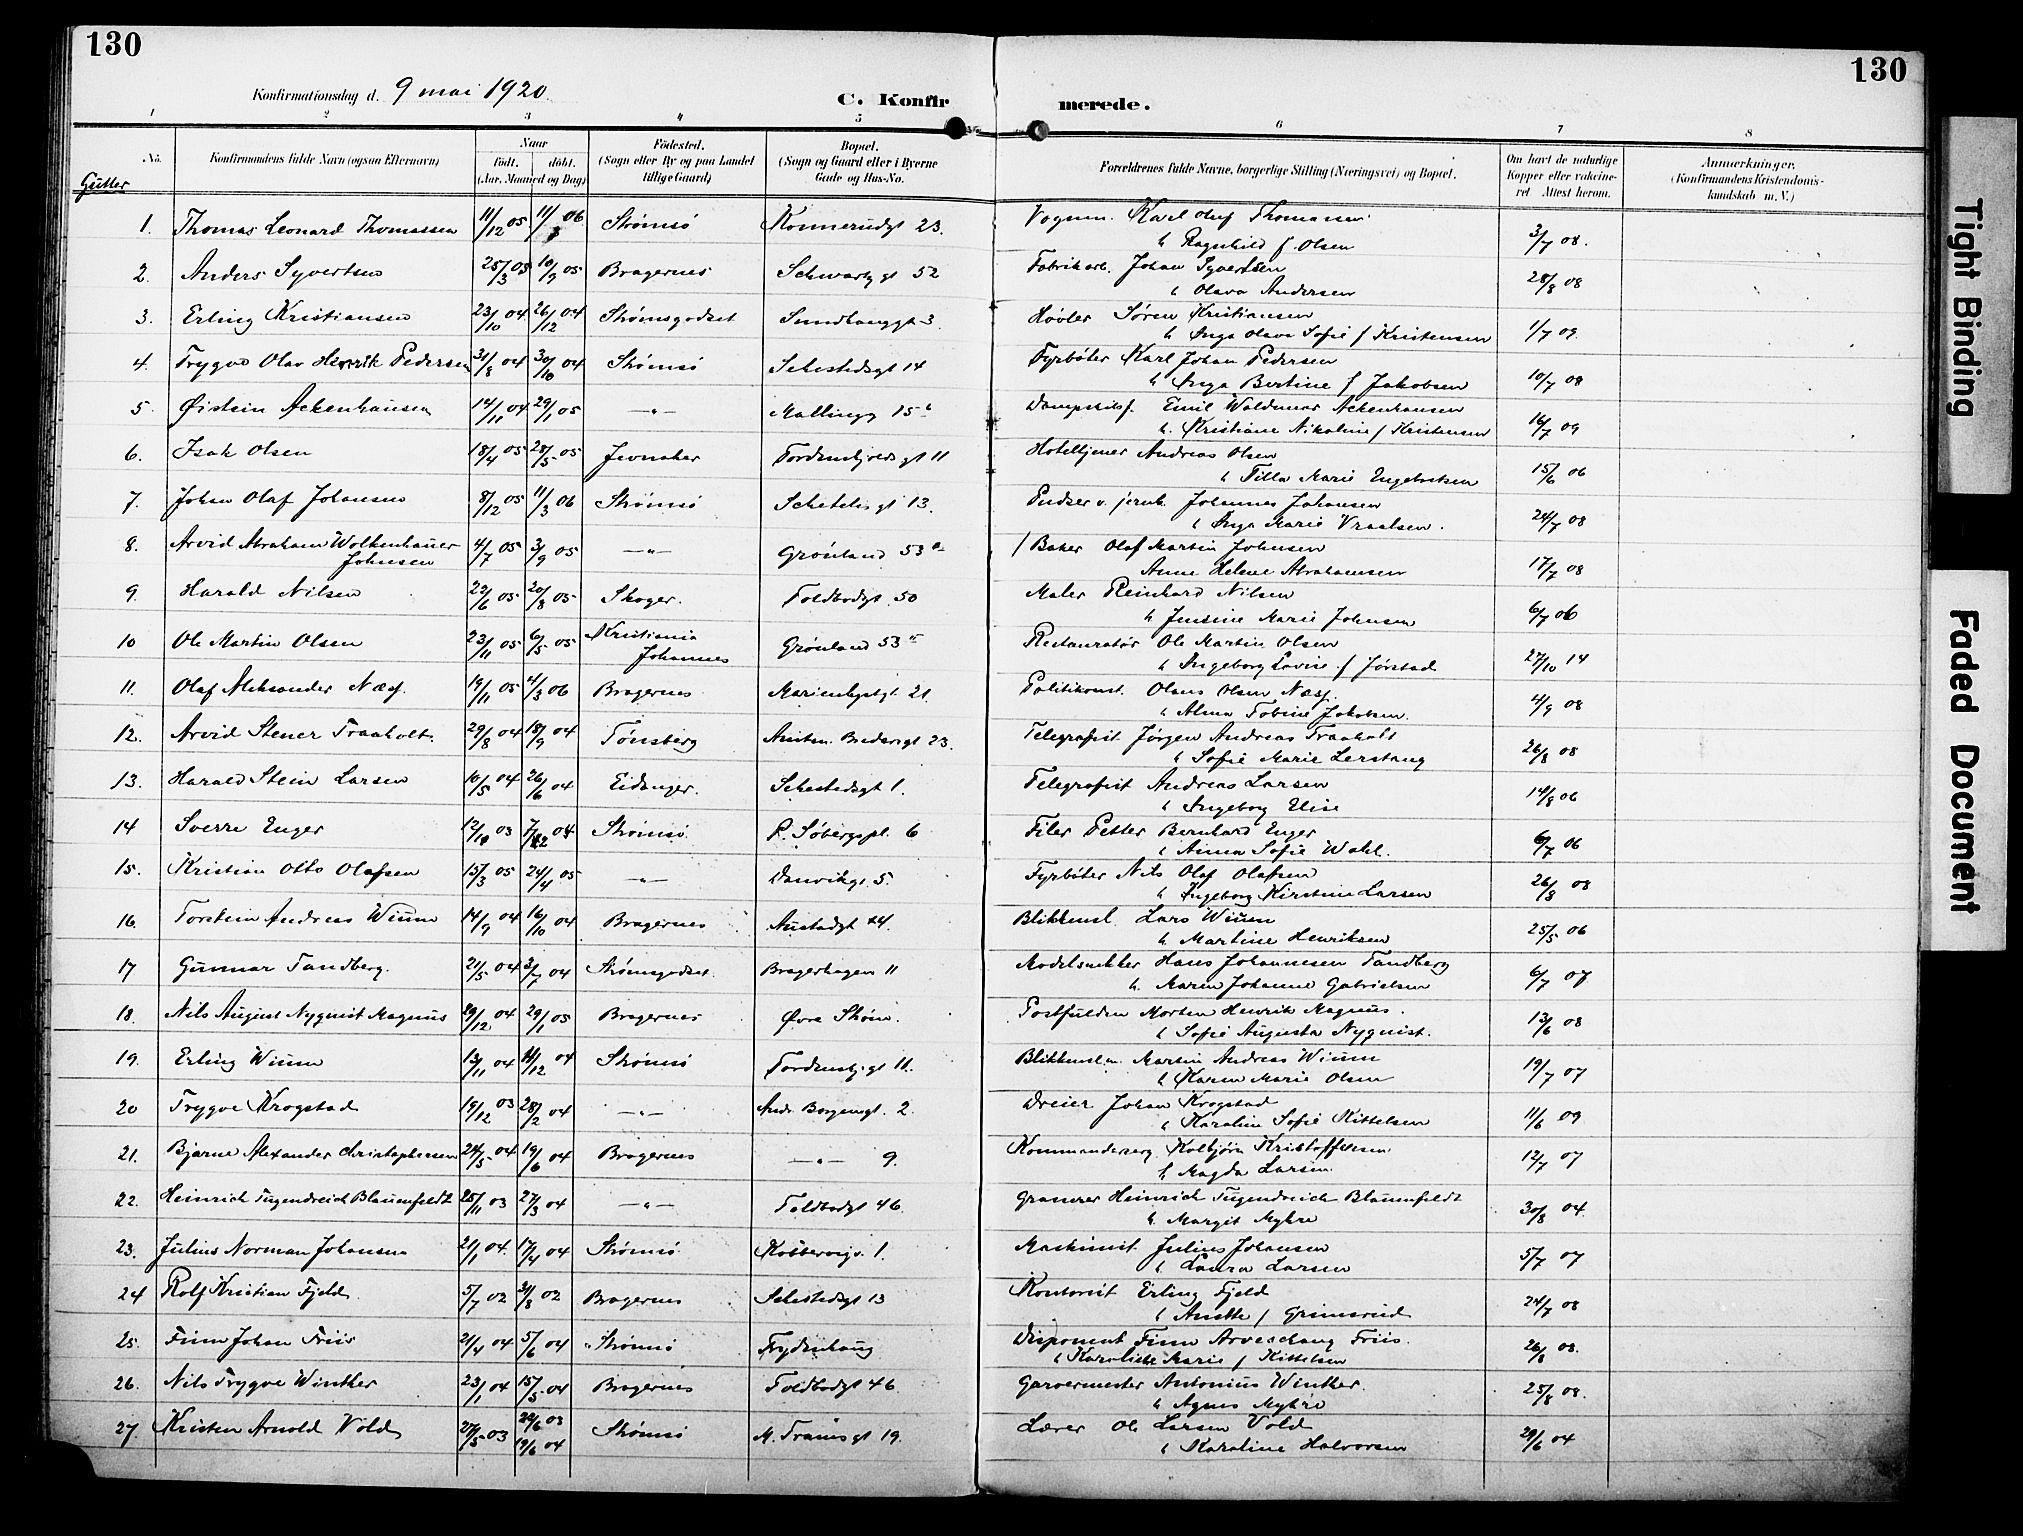 130
130
Konfirmationsdag d. 9 mai 1920
C. Konfirmerede.
1 2 3 4 5 6 7 8
No. Konfirmandens fulde Navn (ogsaa Efternavn) Naar födt. döbt. (Aar, Maaned og Dag) Födested. (Sogn eller By og paa Landet tillige Gaard) Bopæl. (Sogn og Gaard eller i Byerne Gade og Hus-No. Forældrenes fulde Navne, borgerlige Stilling (Næringsvei) og Bopæl. Om havt de naturlige Kopper eller vakcineret Attest herom. Anmærkninger. (Konfirmandens Kristendomskundskab m. V.)
Gutter
1. Thomas Leonard Thomassen 11/12 05 11/3 06 Strømsø Konnerudgt 23. Vognm. Karl Oluf Thomassen
Ragnhild f. Olsen 3/7 08.
2. Anders Syvertsen 25/3 05 10/9 05 Bragernes Schwartzgt 52 Fabrikarb. Johan Syvertsen
Olava Andersen 28/8 08
3. Erling Kristiansen 23/10 04 26/12 04 Strømsgodset Sundhauggt 3. Høvler Søren Kristiansen
Inga Olava Sofie f Kristensen 1/7 09.
4. Trygve Olav Henrik Pedersen 31/8 04 30/10 04 Strømsø Sehestedsgt 14 Fyrbøter Karl Johan Pedersen
Inga Bertine f Jakobsen 10/7 08
5. Øistein Ackenhausen 14/11 04 29/1 05 —"— Mallinggg 15 Dampskibsf. Emil Waldemar Ackenhausen
Kristiane Nikoline f Kristensen 16/7 09
6. Isak Olsen 18/4 05 28/5 05 Jevnaker Tordenskjoldsgt 11 Hoteltjener Andreas Olsen
Tilla Marie Engebretsen 15/6 06
7. Johan Olaf Johansen 8/12 05 11/3 06 Strømsø Scheteligt 13. Pudser v. jernb. Johannes Johansen
Inga Marie Vraalsen. 24/7 08
8. Arvid Abraham Wolkenhauer Johnsen 4/7 05 3/9 05 —"— Grønland 53 a Baker Olaf Martin Johnsen
Anne Helene Abrahamsen 17/7 08
9. Harald Nilsen 29/6 05 20/8 05 Skoger. Toldbodgt. 50 Maler Reinhard Nilsen
Jensine Marie Johnsen 6/7 06
10 Ole Martin Olsen 23/11 05 6/5 05 Kristiania Johannes Grønland 53 Restauratør Ole Martin Olsen
Ingeborg Lovise f Jørstad 27/10 14
11. Olaf Aleksander Næss. 19/11 05 4/3 06 Bragernes Marienlystgt 21. Politikonst. Olaus Olsen Næss.
Alma Tobine Jakobsen. 4/9 08
12. Arvid Stener Traaholt. 29/8 04 18/9 04 Tønsberg 23. Telegrafist Jørgen Andreas Traaholt
Sofie Marie Lerstang 26/8 08
13. Harald Stein Larsen 10/5 04 26/6 04 Eidanger. Sehestedsgt 1. Telegrafist Andreas Larsen
Ingeborg Elise 14/8 06
14 Sverre Enger 12/10 03 7/2 04 Strømsø P. Søbergspl. 6 Filer Petter Bernhard Enger
Anna Sofie Wahl. 6/7 06
15. Kristian Otto Olafsen 15/3 05 24/4 05 —"— Danvikgt. 5. Fyrbøter Nils Olaf Olafsen
Ingeborg Kirstine Larsen 26/8 08
16. Torstein Andreas Wium 14/9 04 16/10 04 Bragernes Austadgt 44. Blikkensl. Lars Wium
Martine Henriksen 25/5 06
17 Gunnar Tandberg. 21/5 04 3/7 04 Strømsgodset. Bragerhagen 11 Modelsnekker Hans Johannesen Tandberg
Maren Johanne Gabrielsen 6/7 07
18. Nils August Nyquist Magnus 29/12 04 29/1 05 Bragernes Øvre Strøm. Postfuldm Morten Henrik Magnus.
Sofie Augusta Nyquist. 13/6 08
19. Erling Wium 13/11 04 11/12 04 Strømsø Tordenskj. gt 11. Blikkensl.m. Martin Andreas Wium
Karen Marie Olsen 19/7 07
20 Trygve Krogstad 19/12 03 28/2 04 —"— Andr. Borgengt. 2. Dreier Johan Krogstad
Karoline Sofie Kittelsen 11/6 09
21. Bjarne Alexander Christophersen 24/5 04 19/6 04 Bragernes —"— 9. Kommandersg. Kolbjørn Kristoffersen
Magda Larsen 12/7 07
22. Heinrich Tugendreich Blauenfeldt 25/11 03 27/3 04 —"— Toldbodgt 46. Graverer Heinrich Tugendreich Blauenfeldt
Margit Myhre 30/8 04.
23. Julius Norman Johansen 21/1 04. 17/4 04 Strømsø. 1. Maskinist. Julius Johansen
Laura Larsen 5/7 07
24 Rolf Kristian Fjeld. 5/7 02 31/8 02 Bragernes Sehestedsgt 13 Kontorist Erling Fjeld
Anette f Grimsrud 24/7 08
25. Finn Johan Friis 21/4 04 5/6 04 Strømsø Frydenhaug Disponent Finn Arveschoug Friis.
Karoline Marie f Kittelsen 26/8 08.
26. Nils Trygve Winther 23/1 04 15/5 04 Bragernes Toldbodgt 46. Garvermester Antonius Winther.
Agnes Myhre 25/8 08.
27 Kristen Arnold Vold 27/5 03 22/6 03 19/6 04 Strømsø M. Tranesgt 19. Lærer Ole Larsen Vold
Karoline Halvorsen 29/6 04
Tight Binding
Faded Document